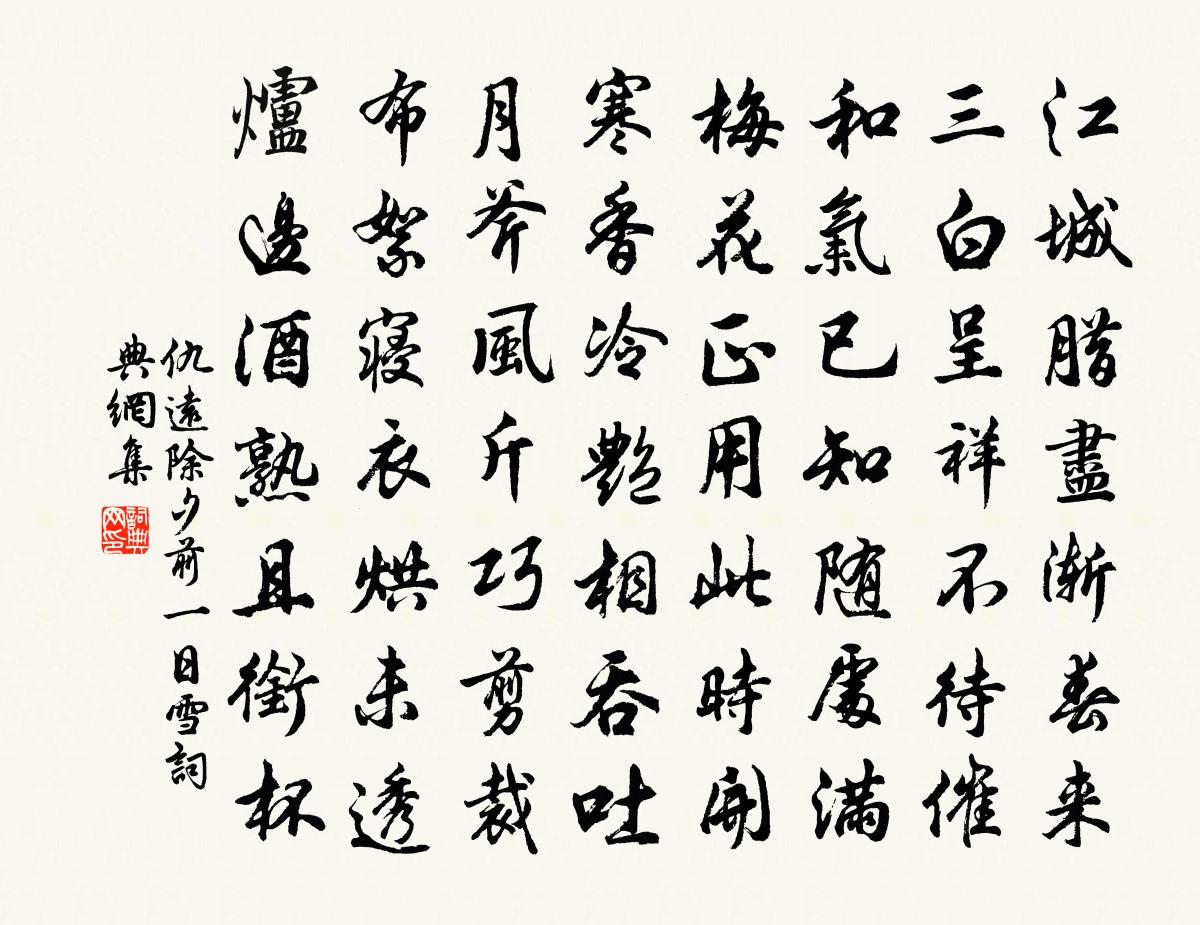 江城腊盡漸春来
三白呈祥不待催
和氣已知随處滿
梅花正用此時開
寒香冷艷相吞吐
月斧風斤巧剪裁
布絮寝衣烘未透
爐邊酒熟且銜杯
仇遠除夕前一日雪詞
典網集
詞典
网印